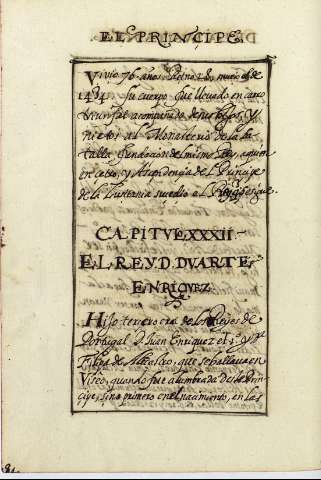 EL PRINCIPE
Vivio 76 años Reino 28 nueve de
1434 Su cuerpo fue llevado en carro
triunfal acompañado de sus hijos y
nietos al Monasterio de la Ba
talla fundacion del mismo Rey, a quien
en cetro, y Ascendencia de la Principe
de la Lusitania sucedio el Principe que.
CAPITVL XXXII
EL REY D. DVARTE
ENRIQVEZ
Hijo tercero era de los Reyes de
Portugal D. Juan Enriquez el 1. y Da.
Felipa de Alencastro, que se hallava en
Viseo, quando fue alumbrada deste Prin-
cipe, sino primero en el nacimiento, en las